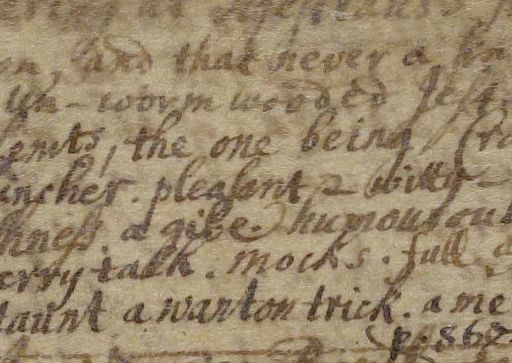 on, and that never a
un-worm wooded Jest,
lents, the one being
incher. pleasant & witty
hness. a gibe. humourous
erry talk. Mocks. full
taunt a wanton trick. a me
p. 867